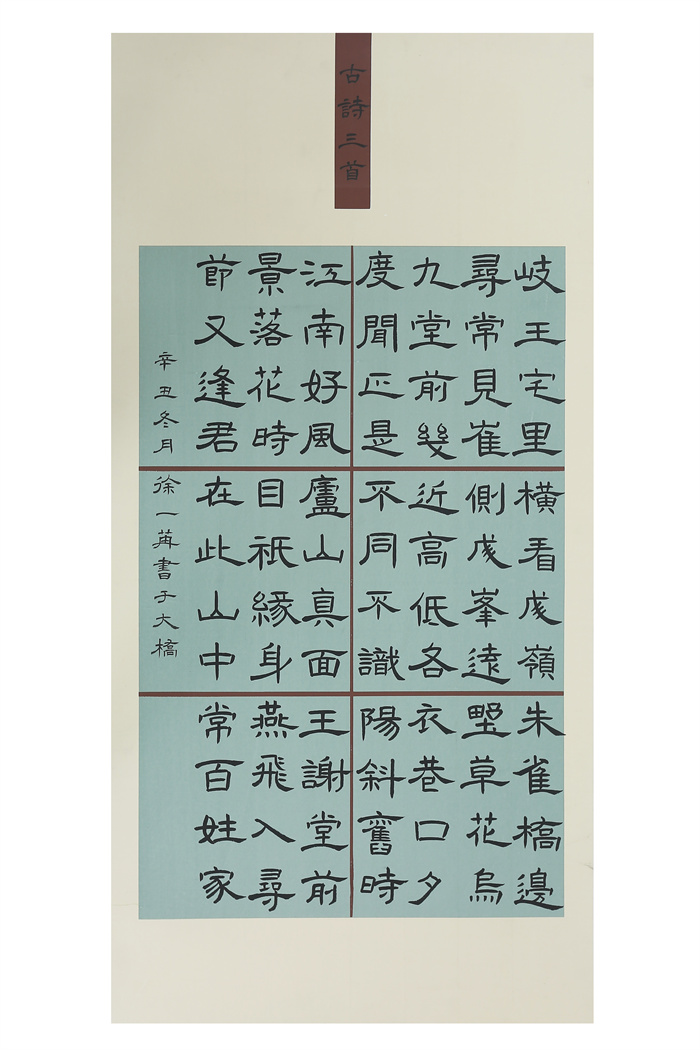 古詩三首
岐王宅里
尋常見崔
九堂前幾
度聞正是
江南好風
景落花時
節又逢君
橫看成嶺
側成峯遠
近高低各
不同不識
廬山真面
目祇緣身
在此山中
朱雀橋邊
野草花烏
衣巷口夕
陽斜舊時
王謝堂前
燕飛入尋
常百姓家
辛丑冬月徐一苒書于大橋